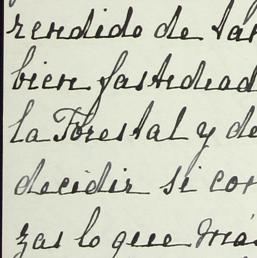 rendido de tan
bien fastidiad
la Forestal y de
decidir si con
zar lo que más